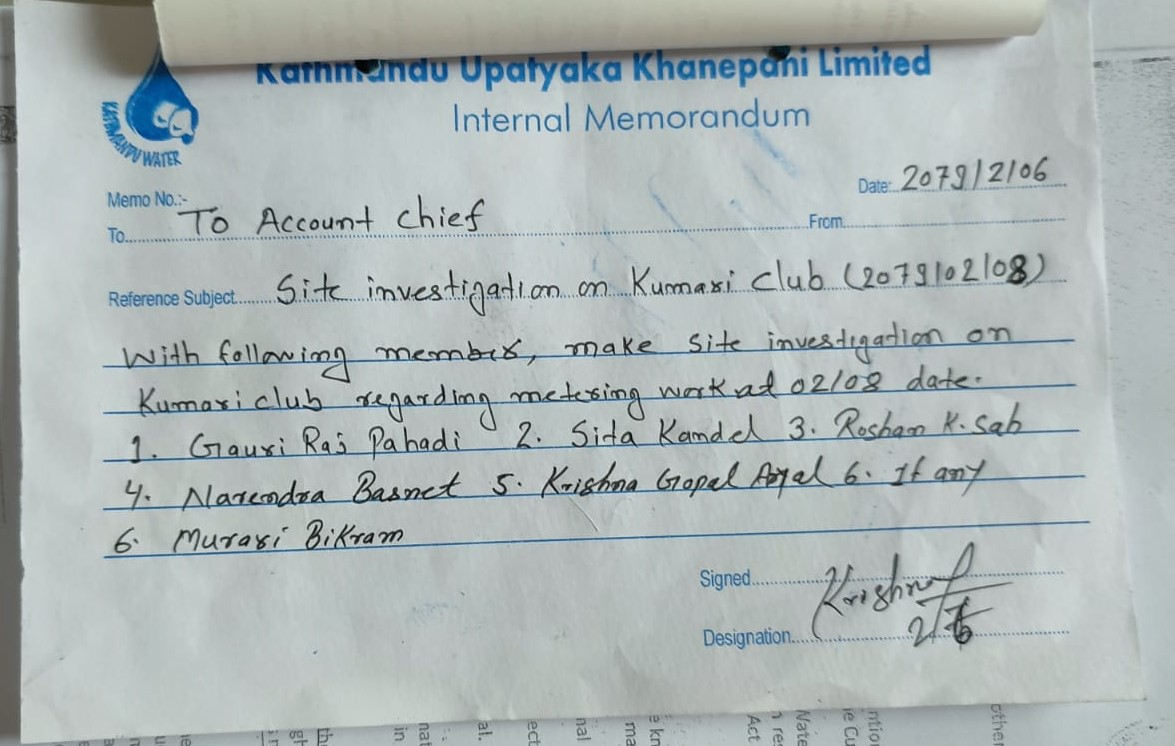 Kathmandu Upatyaka Khanepani Limited
Internal Memorandum
KATHMANDU WATER
Date: 2079/2/06
Memo No.:-
To To Account Chief From
Reference Subject Site investigation on Kumari Club (2079/02/08)
With following member, make site investigation on
Kumari club regarding metering work at 02/08 date.
1. Gauri Raj Pahadi 2. Sita Kandel 3. Roshan K. Sah
4. Narendra Basnet 5. Krishna Gopal Aryal 6. If any
6. Murari Bikram
Signed Krishna
Designation 2/6